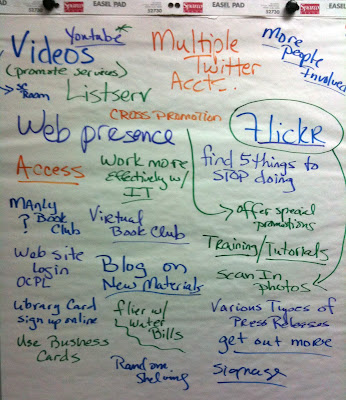 EASEL PAD
EASEL PAD
Youtube*
Videos
(promote services)
Room
Listserv
Multiple
Twitter
Acct-.
More
people
Involved
CROSS PROMOTION
Web presence
Flickr
Access
Work more
effectively w/
IT
find 5 things to
STOP doing
offer special
promotions
MANLY
? Book
Club
Virtual
Book Club
Training/Tutorials
Web site
login
OCPL
Blog on
New Materials
scan In
photos
Library Card
sign up online
flier w/
water
Bills
Various Types of
Press Releases
get out more
Use Business
Cards
Random
Shelving
Signage